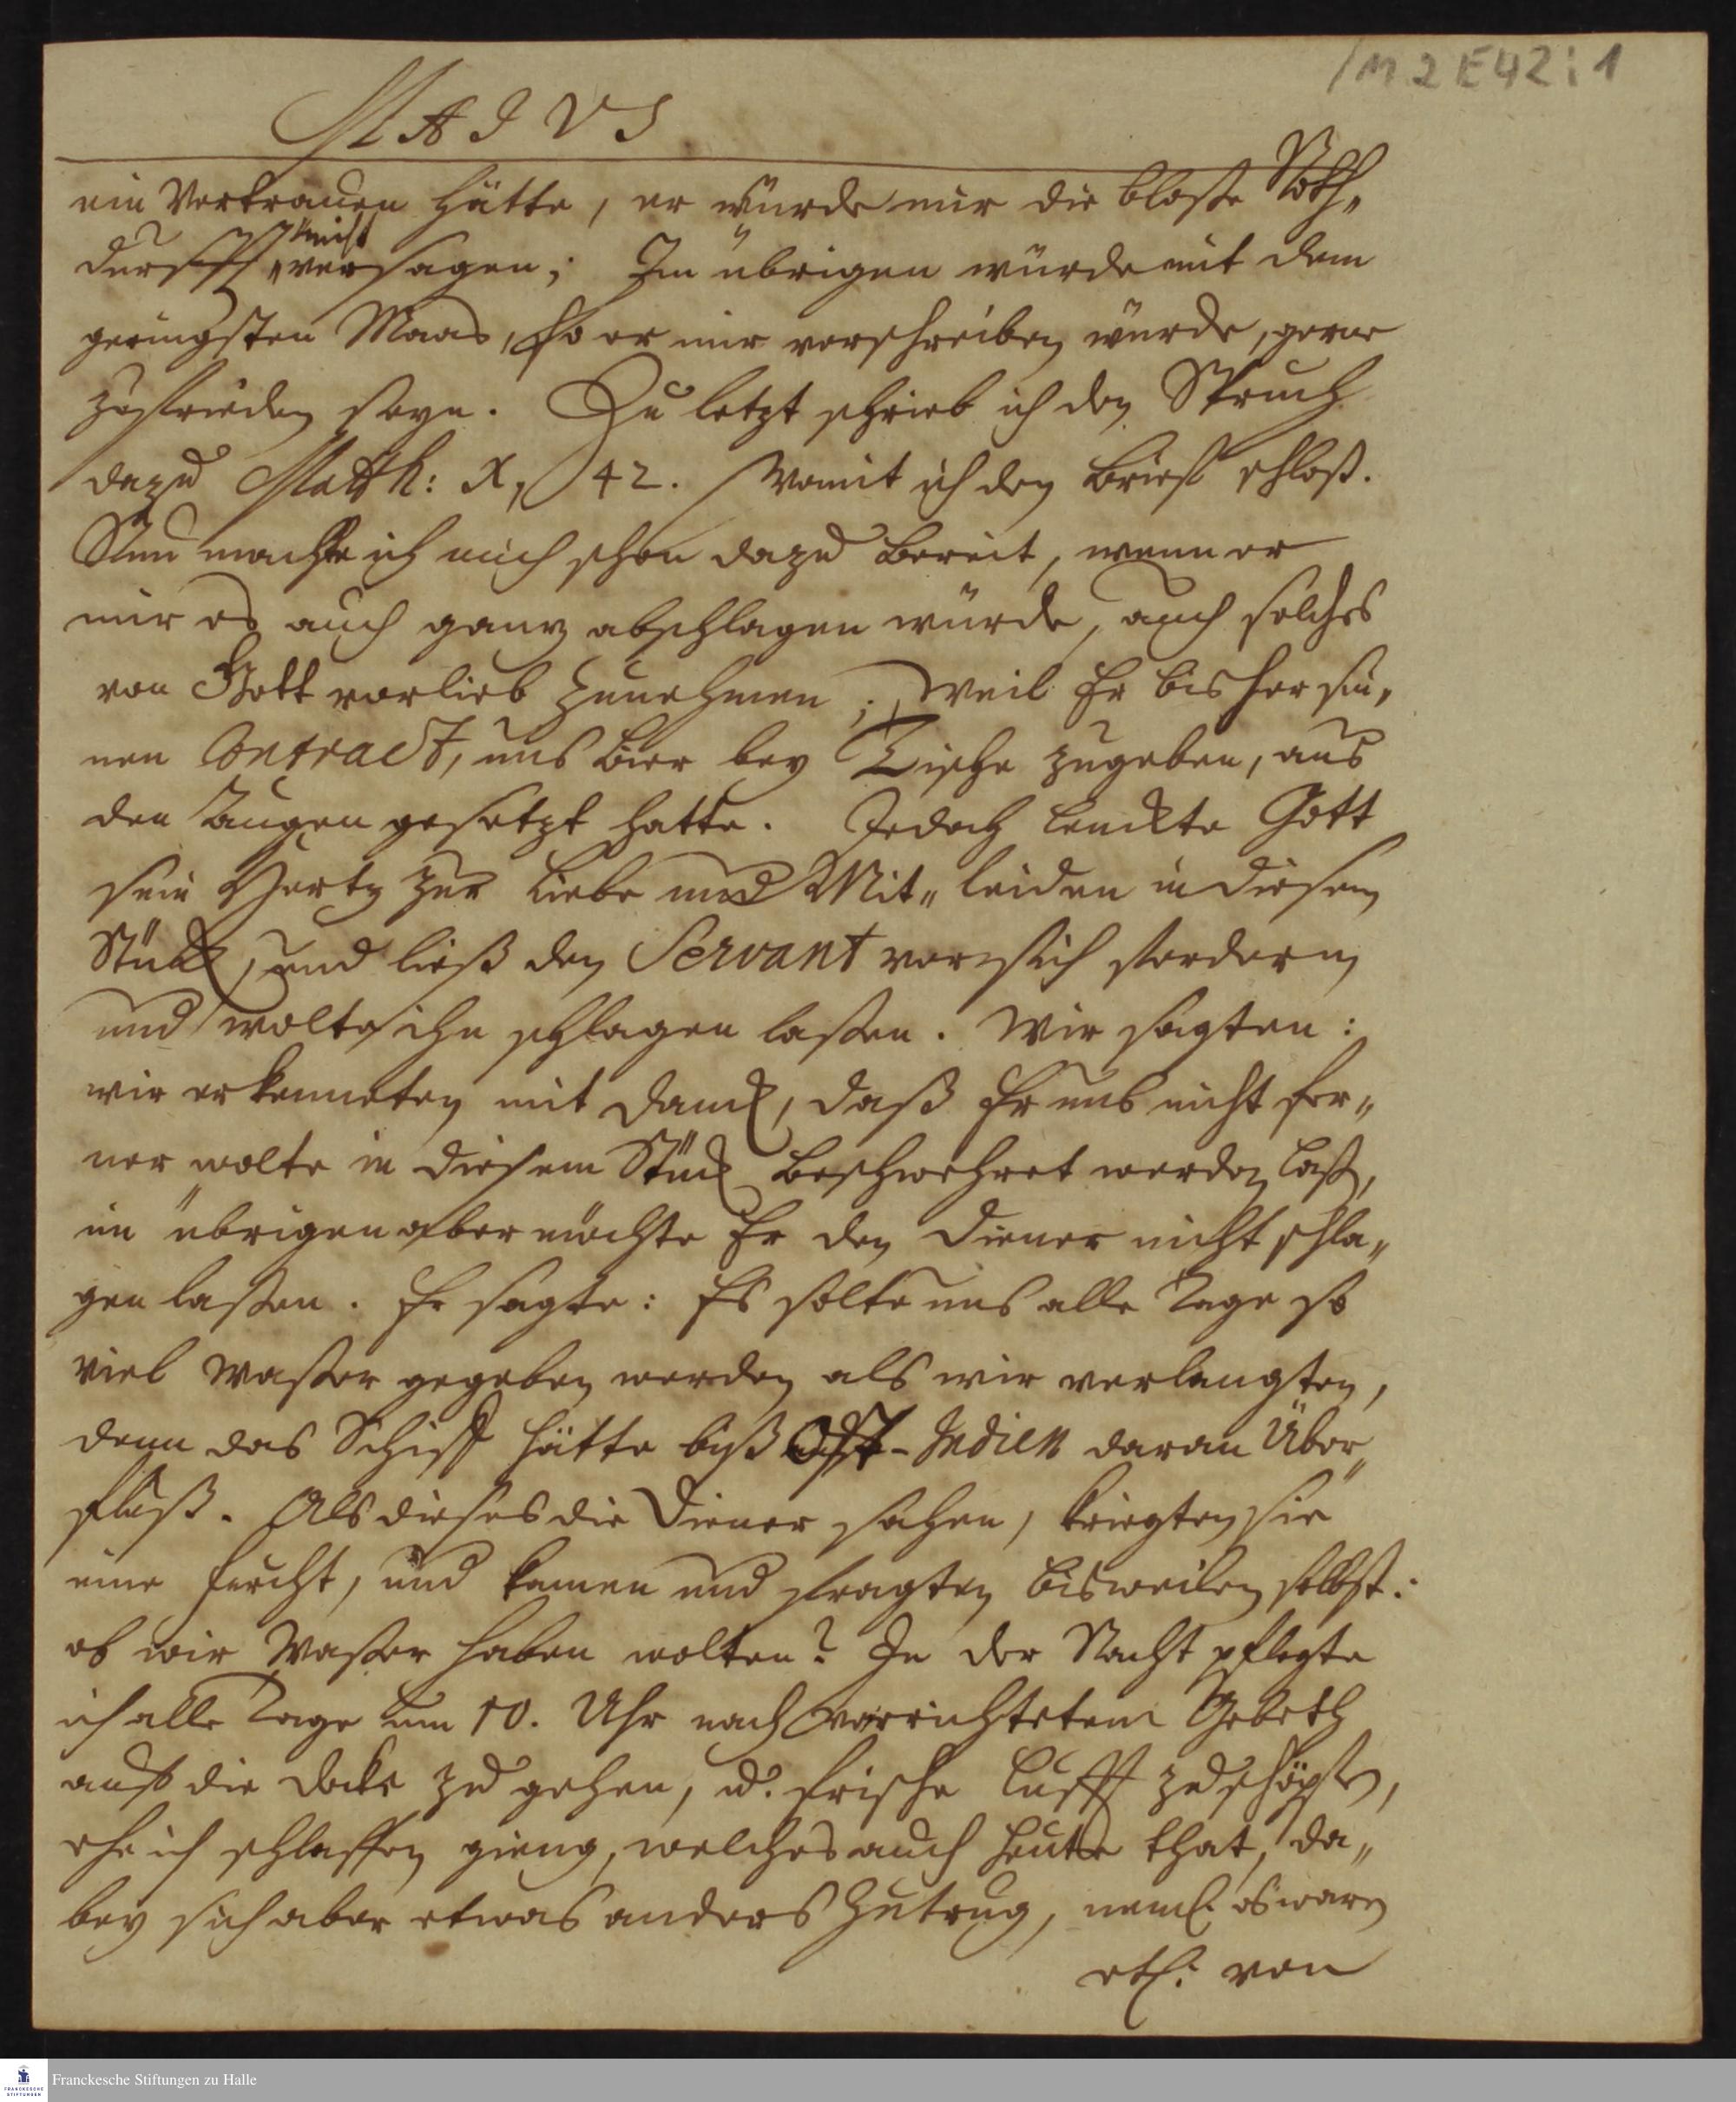 /M 2 E 42 : 1
MAIUS
ein Vertrauen hätte, er würde mir die bloße Noth„
durfft nicht versagen; Im übrigen würde mit dem
geringsten Maas, so er mir vorschreiben würde, gerne
zufrieden seyn. Zu letzt schrieb ich den Spruch
dazu Matth: X, 42. Womit ich den Brieff schloß.
Nun machte ich mich schon dazu bereit, wenn er
mir es auch ganz abschlagen würde, auch solches
von Gott vorlieb zunehmen; Weil Er bisher sei„
nen Contract, uns Bier bey Tische zugeben, aus
den Augen gesetzt hatte. Jedoch lenckte Gott
sein Hertz zur Liebe und Mit„leiden in diesem
Stück, und ließ den Servant vor sich fordern
und wolte ihn schlagen laßen. Wir sagten:
wir erkenneten mit Danck, daß Er uns nicht fer„
ner wolte in diesem Stück beschwehret werden laß,
im übrigen aber möchte Er den Diener nicht schla„
gen laßen. Er sagte: Es solte uns alle Tage so
viel Waßer gegeben werden als wir verlangten,
denn das Schiff hätte biß Ost-Indien daran Über„
fluß. Als dieses die Diener sahen, kriegten sie
eine Furcht, und kamen und fragten bisweilen selbst:
ob wir Waßer haben wolten? In der Nacht pflegte
ich alle Tage um 10. Uhr nach verrichtetem Gebeth
auf die Decke zu gehen, u. frische Lufft zu schöpfen,
ehe ich schlaffen gieng, welches auch heute that, da„
bey sich aber etwas anders zutrug, neml. es waren
etl. von
Franckesche Stiftungen zu Halle
FRANCKESCHE
STIFTUNGEN